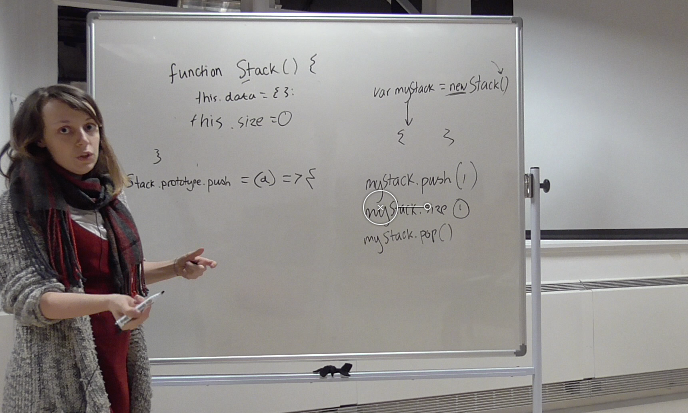 function Stack() {
this.data = {};
this.size = 0
}
Stack.prototype.push = (a) => {
var myStack = new Stack()
{ }
myStack.push(1)
myStack.size 1
myStack.pop()